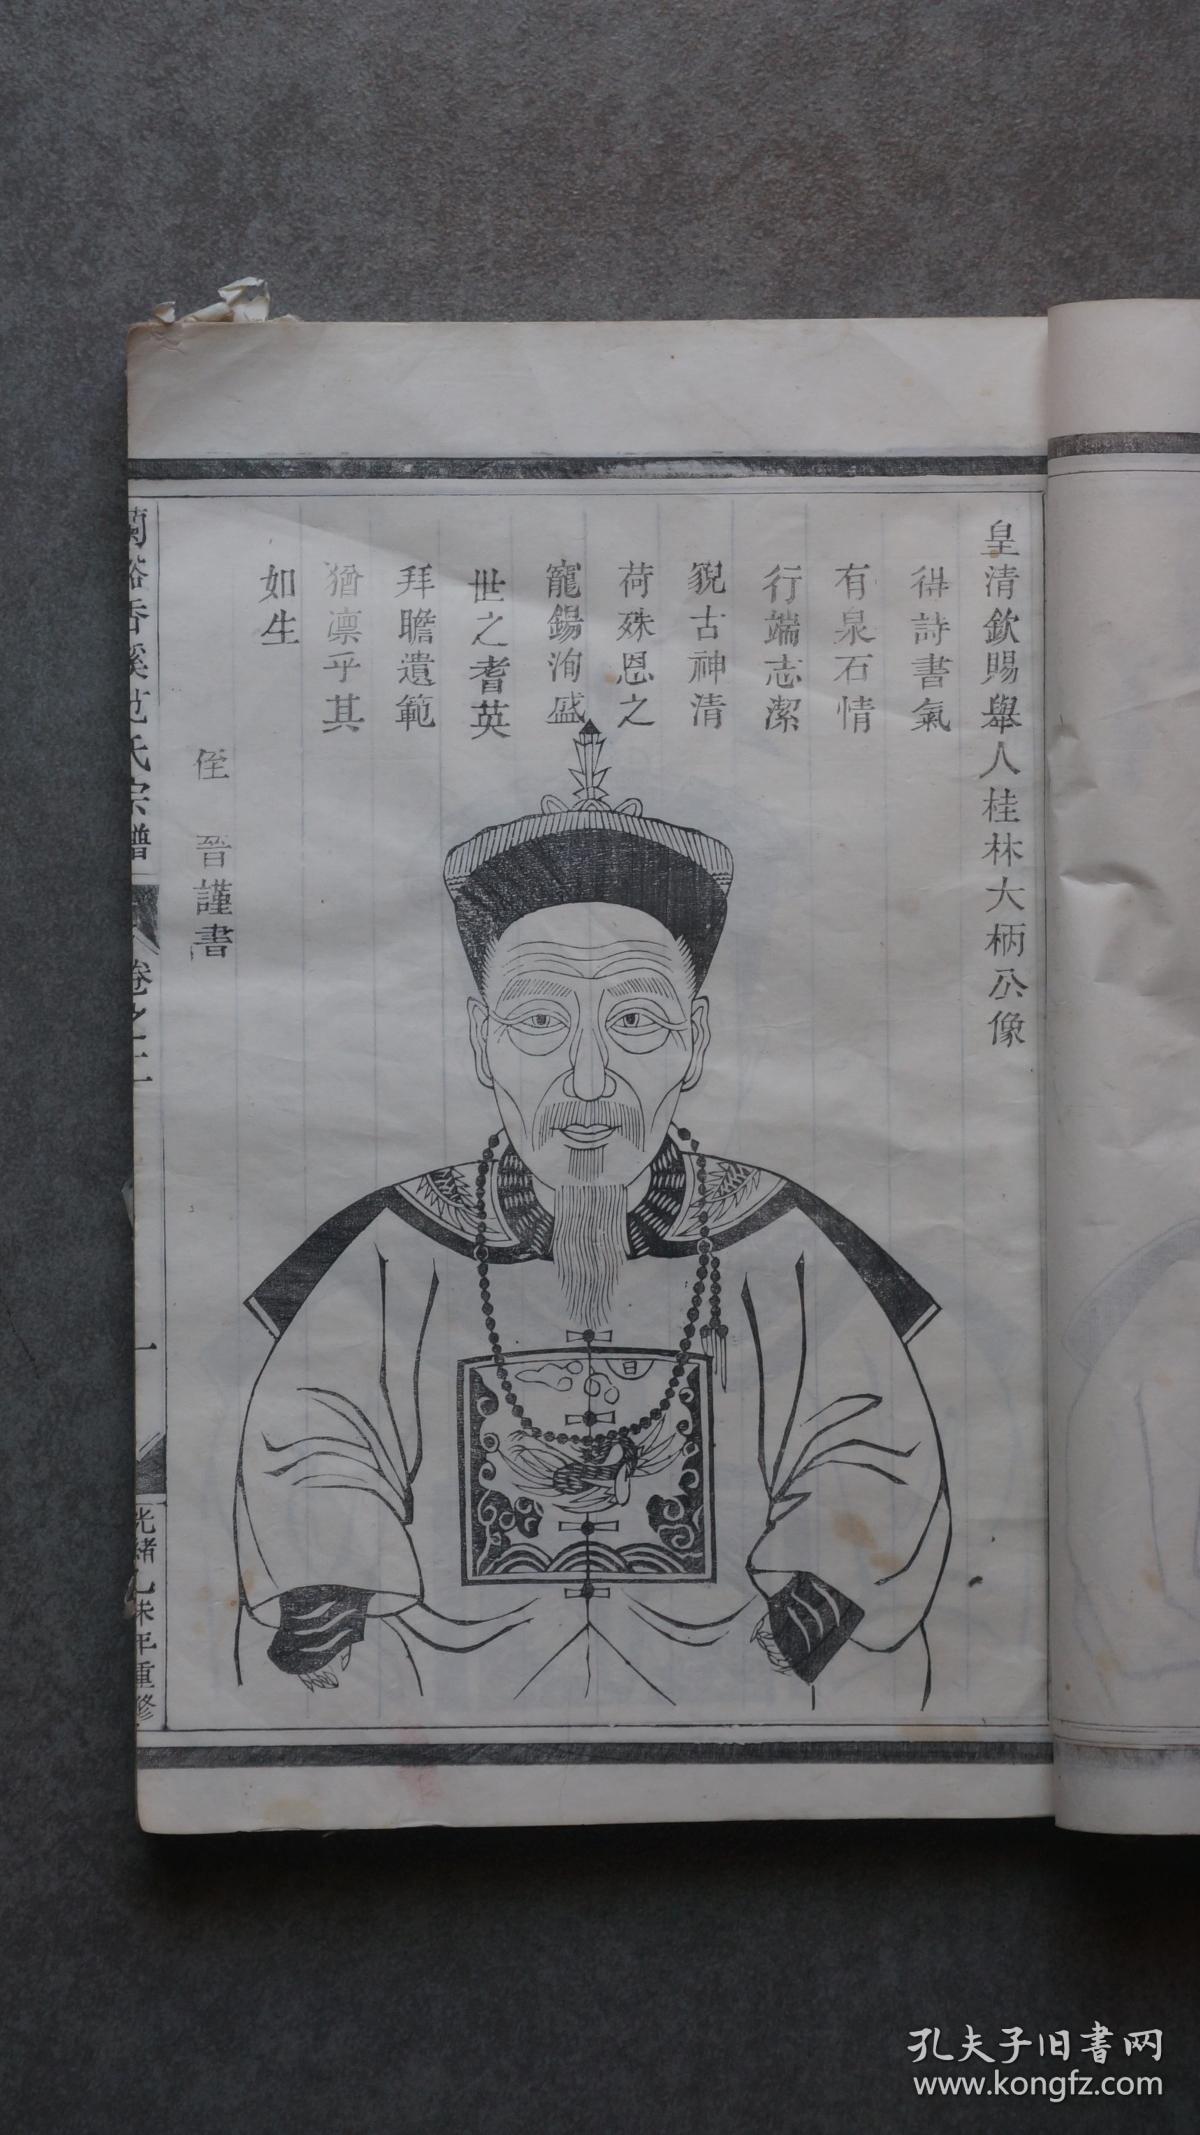 皇清欽賜舉人桂林大柄公像
得詩書氣
有泉石情
行端志潔
貌古神清
荷殊恩之
寵錫洵盛
世之耆英
拜瞻遺範
猶凛乎其
如生
侄 晉謹書
蘭谿香溪范氏宗譜
卷之二
一
光緒乙未年重修
日
孔夫子旧书网
www.kongfz.com